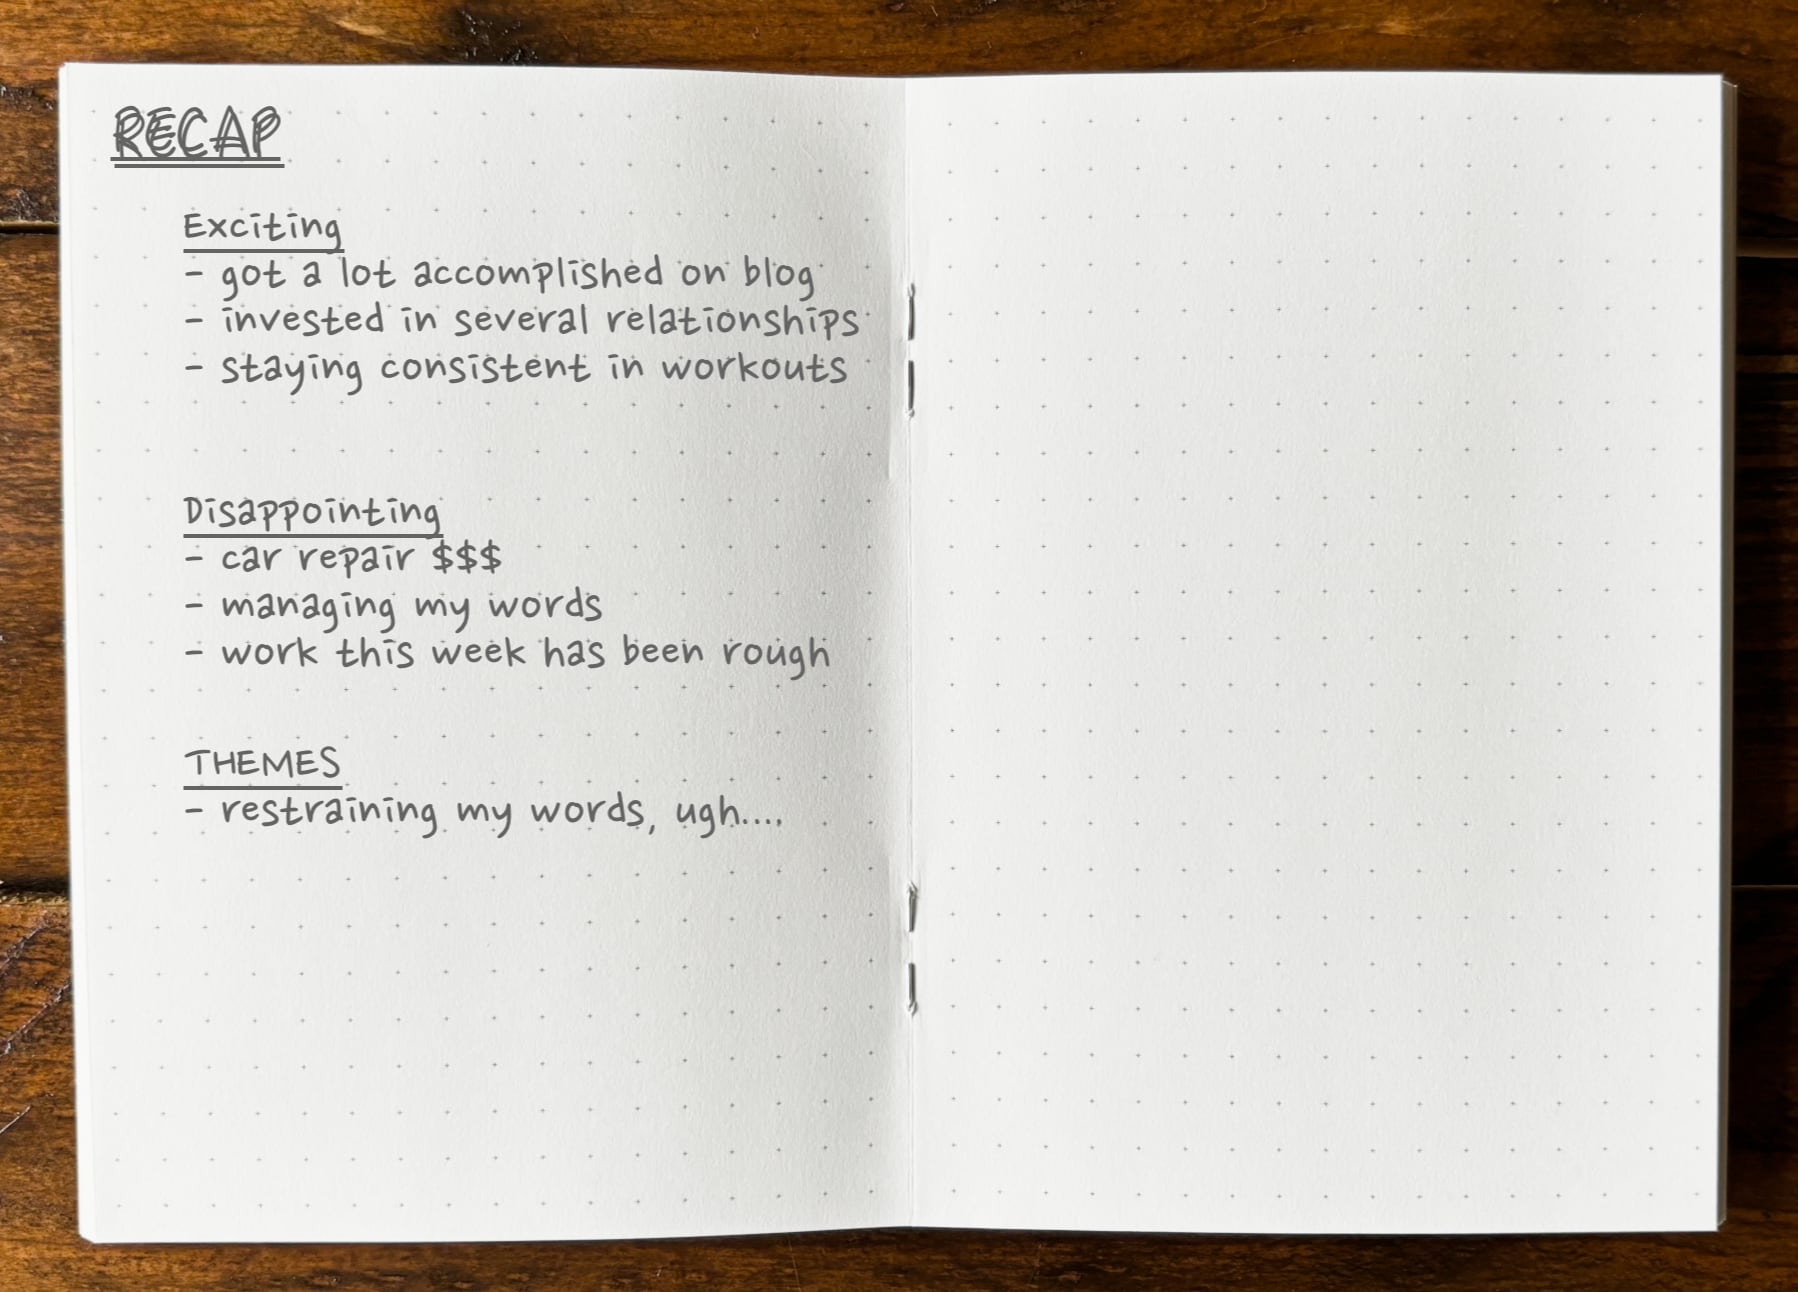 RECAP
Exciting
- got a lot accomplished on blog
- invested in several relationships
- staying consistent in workouts
Disappointing
- car repair $$$
- managing my words
- work this week has been rough
THEMES
- restraining my words, ugh....